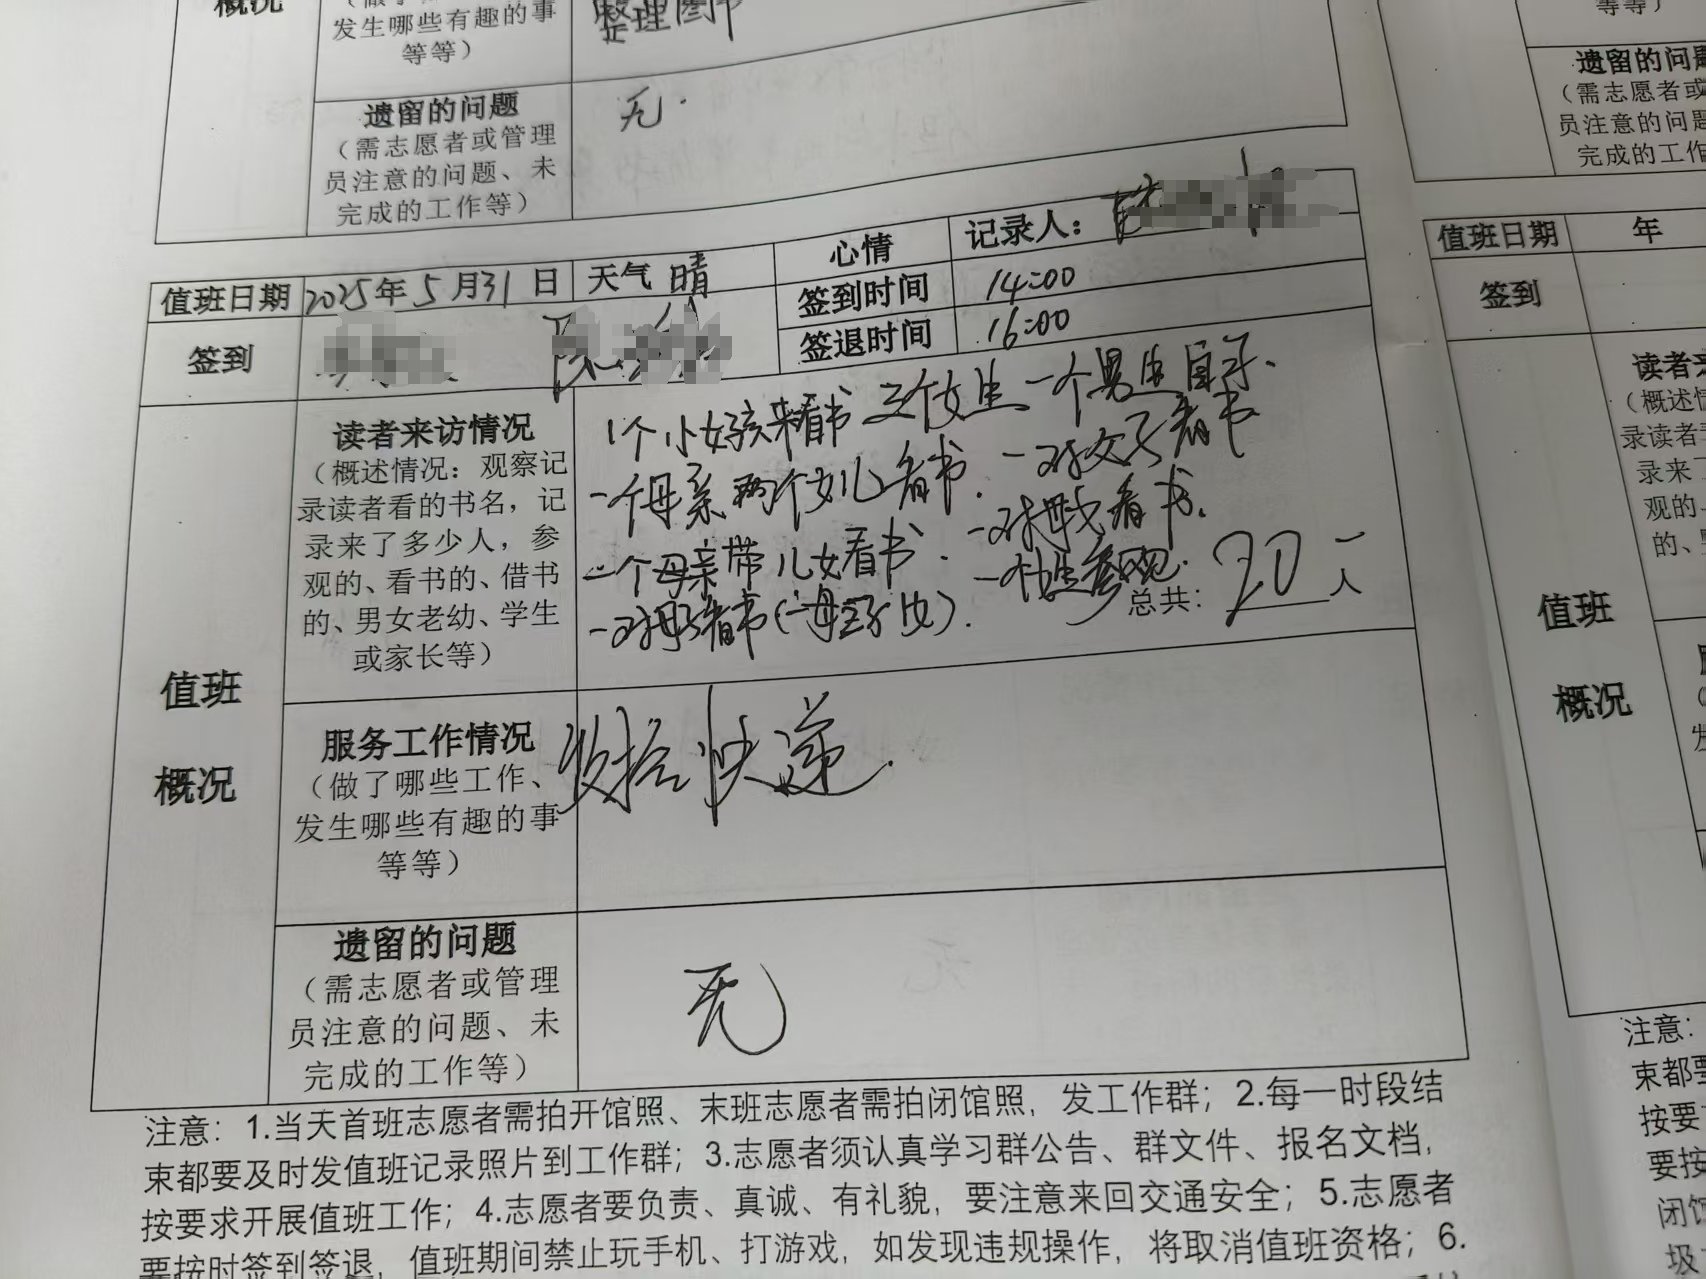 概况
发生哪些有趣的事
等等）
整理图书
遗留的问题
（需志愿者或管理
员注意的问题、未
完成的工作等）
无.
值班日期 2025年5月31日 天气 晴 心情 记录人：
签到时间 14:00
签到
签退时间 16:00
值班
概况
读者来访情况
（概述情况：观察记
录读者看的书名，记
录来了多少人，参
观的、看书的、借书
的、男女老幼、学生
或家长等）
1个小女孩来看书 三个女生 一个男生自习.
一个母亲两个女儿看书. 一对父子看书
一个母亲带儿女看书. 一对母女看书.
一对母子看书 一对 参观.
总共：20人
服务工作情况
（做了哪些工作、
发生哪些有趣的事
等等）
收拾快递.
遗留的问题
（需志愿者或管理
员注意的问题、未
完成的工作等）
无
注意：1.当天首班志愿者需拍开馆照、末班志愿者需拍闭馆照，发工作群；2.每一时段结
束都要及时发值班记录照片到工作群；3.志愿者须认真学习群公告、群文件、报名文档，
按要求开展值班工作；4.志愿者要负责、真诚、有礼貌，要注意来回交通安全；5.志愿者
要按时签到签退，值班期间禁止玩手机、打游戏，如发现违规操作，将取消值班资格；6.
等等）
遗留的问题
（需志愿者或
员注意的问题
完成的工作
值班日期 年
签到
值班
概况
读者来
（概述情
录读者
录来了
观的、
的、
注意：
束都要
按要
要按
闭馆
圾